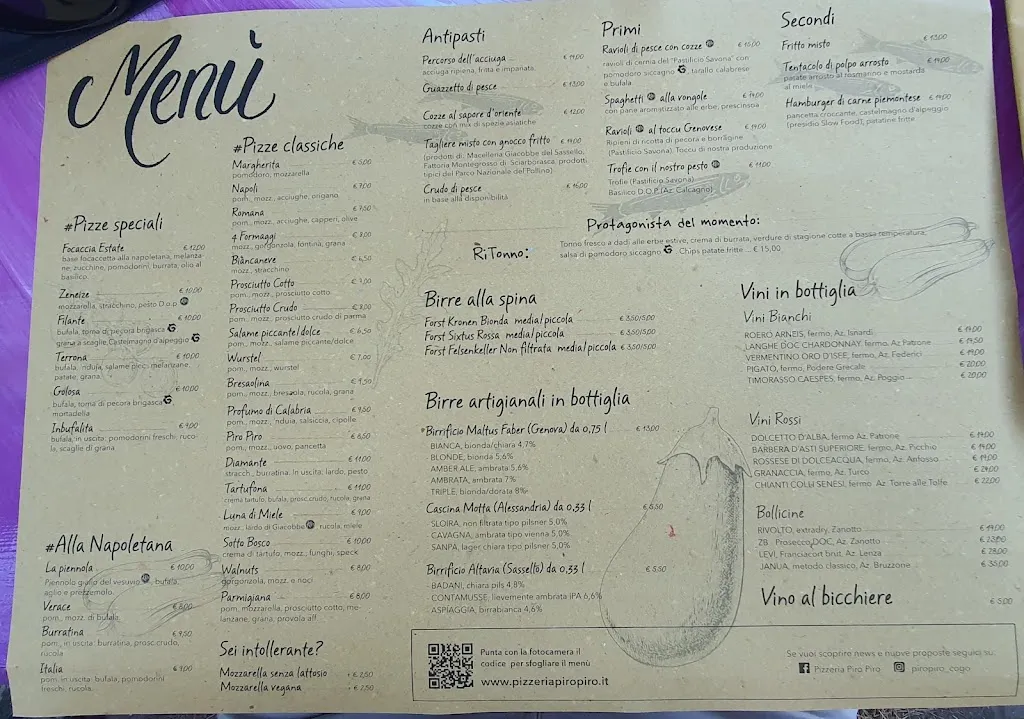 Menù
#Pizze speciali
Focaccia Estate € 12,00
base focaccetta alla napoletana, melanza-
ne, zucchine, pomodorini, burrata, olio al
basilico
Zeneize € 10,00
mozzarella, stracchino, pesto D.o.p
Filante € 10,00
bufala, toma di pecora brigasca
grana a scaglie, Castelmagno d'alpeggio
Terrona € 10,00
bufala, nduja, salame picc., melanzane,
patate, grana
Golosa € 10,00
bufala, toma di pecora brigasca
mortadella
Inbufalita € 9,00
bufala, in uscita: pomodorini freschi, ruco-
la, scaglie di grana
#Alla Napoletana
La piennola € 10,00
Piennolo giallo del vesuvio, bufala,
aglio e prezzemolo
Verace € 8,00
pom., mozz. di bufala
Burratina € 9,50
pom., in uscita: burratina, prosc.crudo,
rucola
Italia € 9,00
pom. in uscita: bufala, pomodorini
freschi, rucola
#Pizze classiche
Margherita € 6,00
pomodoro, mozzarella
Napoli € 7,00
pom., mozz., acciughe, origano
Romana € 7,50
pom., mozz., acciughe, capperi, olive
4 Formaggi € 8,00
mozz., gorgonzola, fontina, grana
Biancaneve € 6,50
mozz., stracchino
Prosciutto Cotto
pom., mozz., prosciutto cotto
Prosciutto Crudo € 8,00
pom., mozz., prosciutto crudo di parma
Salame piccante/dolce € 6,50
pom., mozz., salame piccante/dolce
Wurstel € 7,00
pom., mozz., wurstel
Bresaolina
pom., mozz., bresaola, rucola, grana
Profumo di Calabria € 9,50
pom., mozz., nduja, salsiccia, cipolle
Piro Piro € 8,50
pom., mozz., uovo, pancetta
Diamante € 11,00
stracch., burratina. In uscita: lardo, pesto
Tartufona € 11,00
crema tartufo, bufala, prosc.crudo, rucola, grana
Luna di Miele € 9,00
mozz., lardo di Giacobbe, rucola, miele
Sotto Bosco € 10,00
crema di tartufo, mozz., funghi, speck
Walnuts € 8,00
gorgonzola, mozz. e noci
Parmigiana € 8,00
pom., mozzarella, prosciutto cotto, me-
lanzane, grana, provola aff.
Sei intollerante?
Mozzarella senza lattosio + € 2,50
Mozzarella vegana + € 2,50
Antipasti
Percorso dell'acciuga € 14,00
acciuga ripiena, fritta e impanata
Guazzetto di pesce € 13,00
Cozze al sapore d'oriente € 12,00
cozze con mix di spezie asiatiche
Tagliere misto con gnocco fritto € 14,00
(prodotti di: Macelleria Giacobbe del Sassello,
Fattoria Montegrosso di Sciarborasca, prodotti
tipici del Parco Nazionale del Pollino)
Crudo di pesce € 16,00
in base alla disponibilità
Primi
Ravioli di pesce con cozze € 15,00
ravioli di cernia del "Pastificio Savona" con
pomodoro siccagno, tarallo calabrese
e bufala
Spaghetti alla vongole € 14,00
con pane aromatizzato alle erbe, prescinsoa
Ravioli al toccu Genovese € 14,00
Ripieni di ricotta di pecora e borragine
(Pastificio Savona). Toccu di nostra produzione
Trofie con il nostro pesto € 11,00
Trofie (Pastificio Savona)
Basilico D.O.P.(Az. Calcagno)
Secondi
Fritto misto € 13,00
Tentacolo di polpo arrosto € 14,00
patate arrosto al rosmarino e mostarda
al miele
Hamburger di carne piemontese € 14,00
pancetta croccante, castelmagno d'alpeggio
(presidio Slow Food), patatine fritte
Protagonista del momento:
RiTonno:
Tonno fresco a dadi alle erbe estive, crema di burrata, verdure di stagione cotte a bassa temperatura,
salsa di pomodoro siccagno. Chips patate fritte ... € 15,00
Birre alla spina
Forst Kronen Bionda media/piccola € 3,50/5,00
Forst Sixtus Rossa media/piccola € 3,50/5,00
Forst Felsenkeller Non filtrata media/piccola € 3,50/5,00
Birre artigianali in bottiglia
*Birrificio Maltus Faber (Genova) da 0,75 l € 13,00
BIANCA, bionda/chiara 4,7%
BLONDE, bionda 5,6%
AMBER ALE, ambrata 5,6%
AMBRATA, ambrata 7%
TRIPLE, bionda/dorata 8%
Cascina Motta (Alessandria) da 0,33 l € 5,50
SLOIRA, non filtrata tipo pilsner 5,0%
CAVAGNA, ambrata tipo vienna 5,0%
SANPA, lager chiara tipo pilsner 5,0%
Birrificio Altavia (Sassello) da 0,33 l € 5,50
BADANI, chiara pils 4,8%
CONTAMUSSE, lievemente ambrata IPA 6,6%
ASPIAGGIA, birrabianca 4,6%
Vini in bottiglia
Vini Bianchi
ROERO ARNEIS, fermo, Az. Isnardi € 19,00
LANGHE DOC CHARDONNAY, fermo, Az Patrone € 19,50
VERMENTINO ORO D'ISEE, fermo, Az. Federici € 19,00
PIGATO, fermo, Podere Grecale € 20,00
TIMORASSO CAESPES, fermo, Az. Poggio € 20,00
Vini Rossi
DOLCETTO D'ALBA, fermo Az. Patrone € 19,00
BARBERA D'ASTI SUPERIORE, fermo, Az. Picchio € 19,00
ROSSESE DI DOLCEACQUA, fermo, Az. Anfosso € 19,00
GRANACCIA, fermo, Az. Turco € 29,00
CHIANTI COLLI SENESI, fermo Az. Torre alle Tolfe € 22,00
Bollicine
RIVOLTO, extradry, Zanotto € 19,00
ZB Prosecco DOC, Az. Zanotto € 23,00
LEVI, Franciacort brut, Az. Lenza € 28,00
JANUA, metodo classico, Az. Bruzzone € 35,00
Vino al bicchiere € 5,00
Punta con la fotocamera il
codice per sfogliare il menù
www.pizzeriapiropiro.it
Se vuoi scoprire news e nuove proposte seguici su:
Pizzeria Piro Piro piropiro_cogo